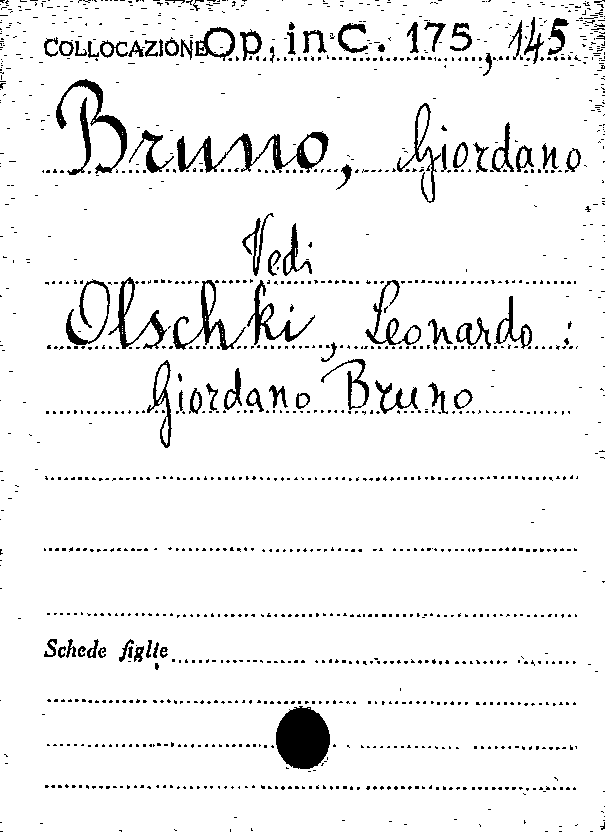 COLLOCAZIONE Op. in C. 175, 145
Bruno, Giordano
Vedi
Olschki, Leonardo :
Giordano Bruno
Schede figlie